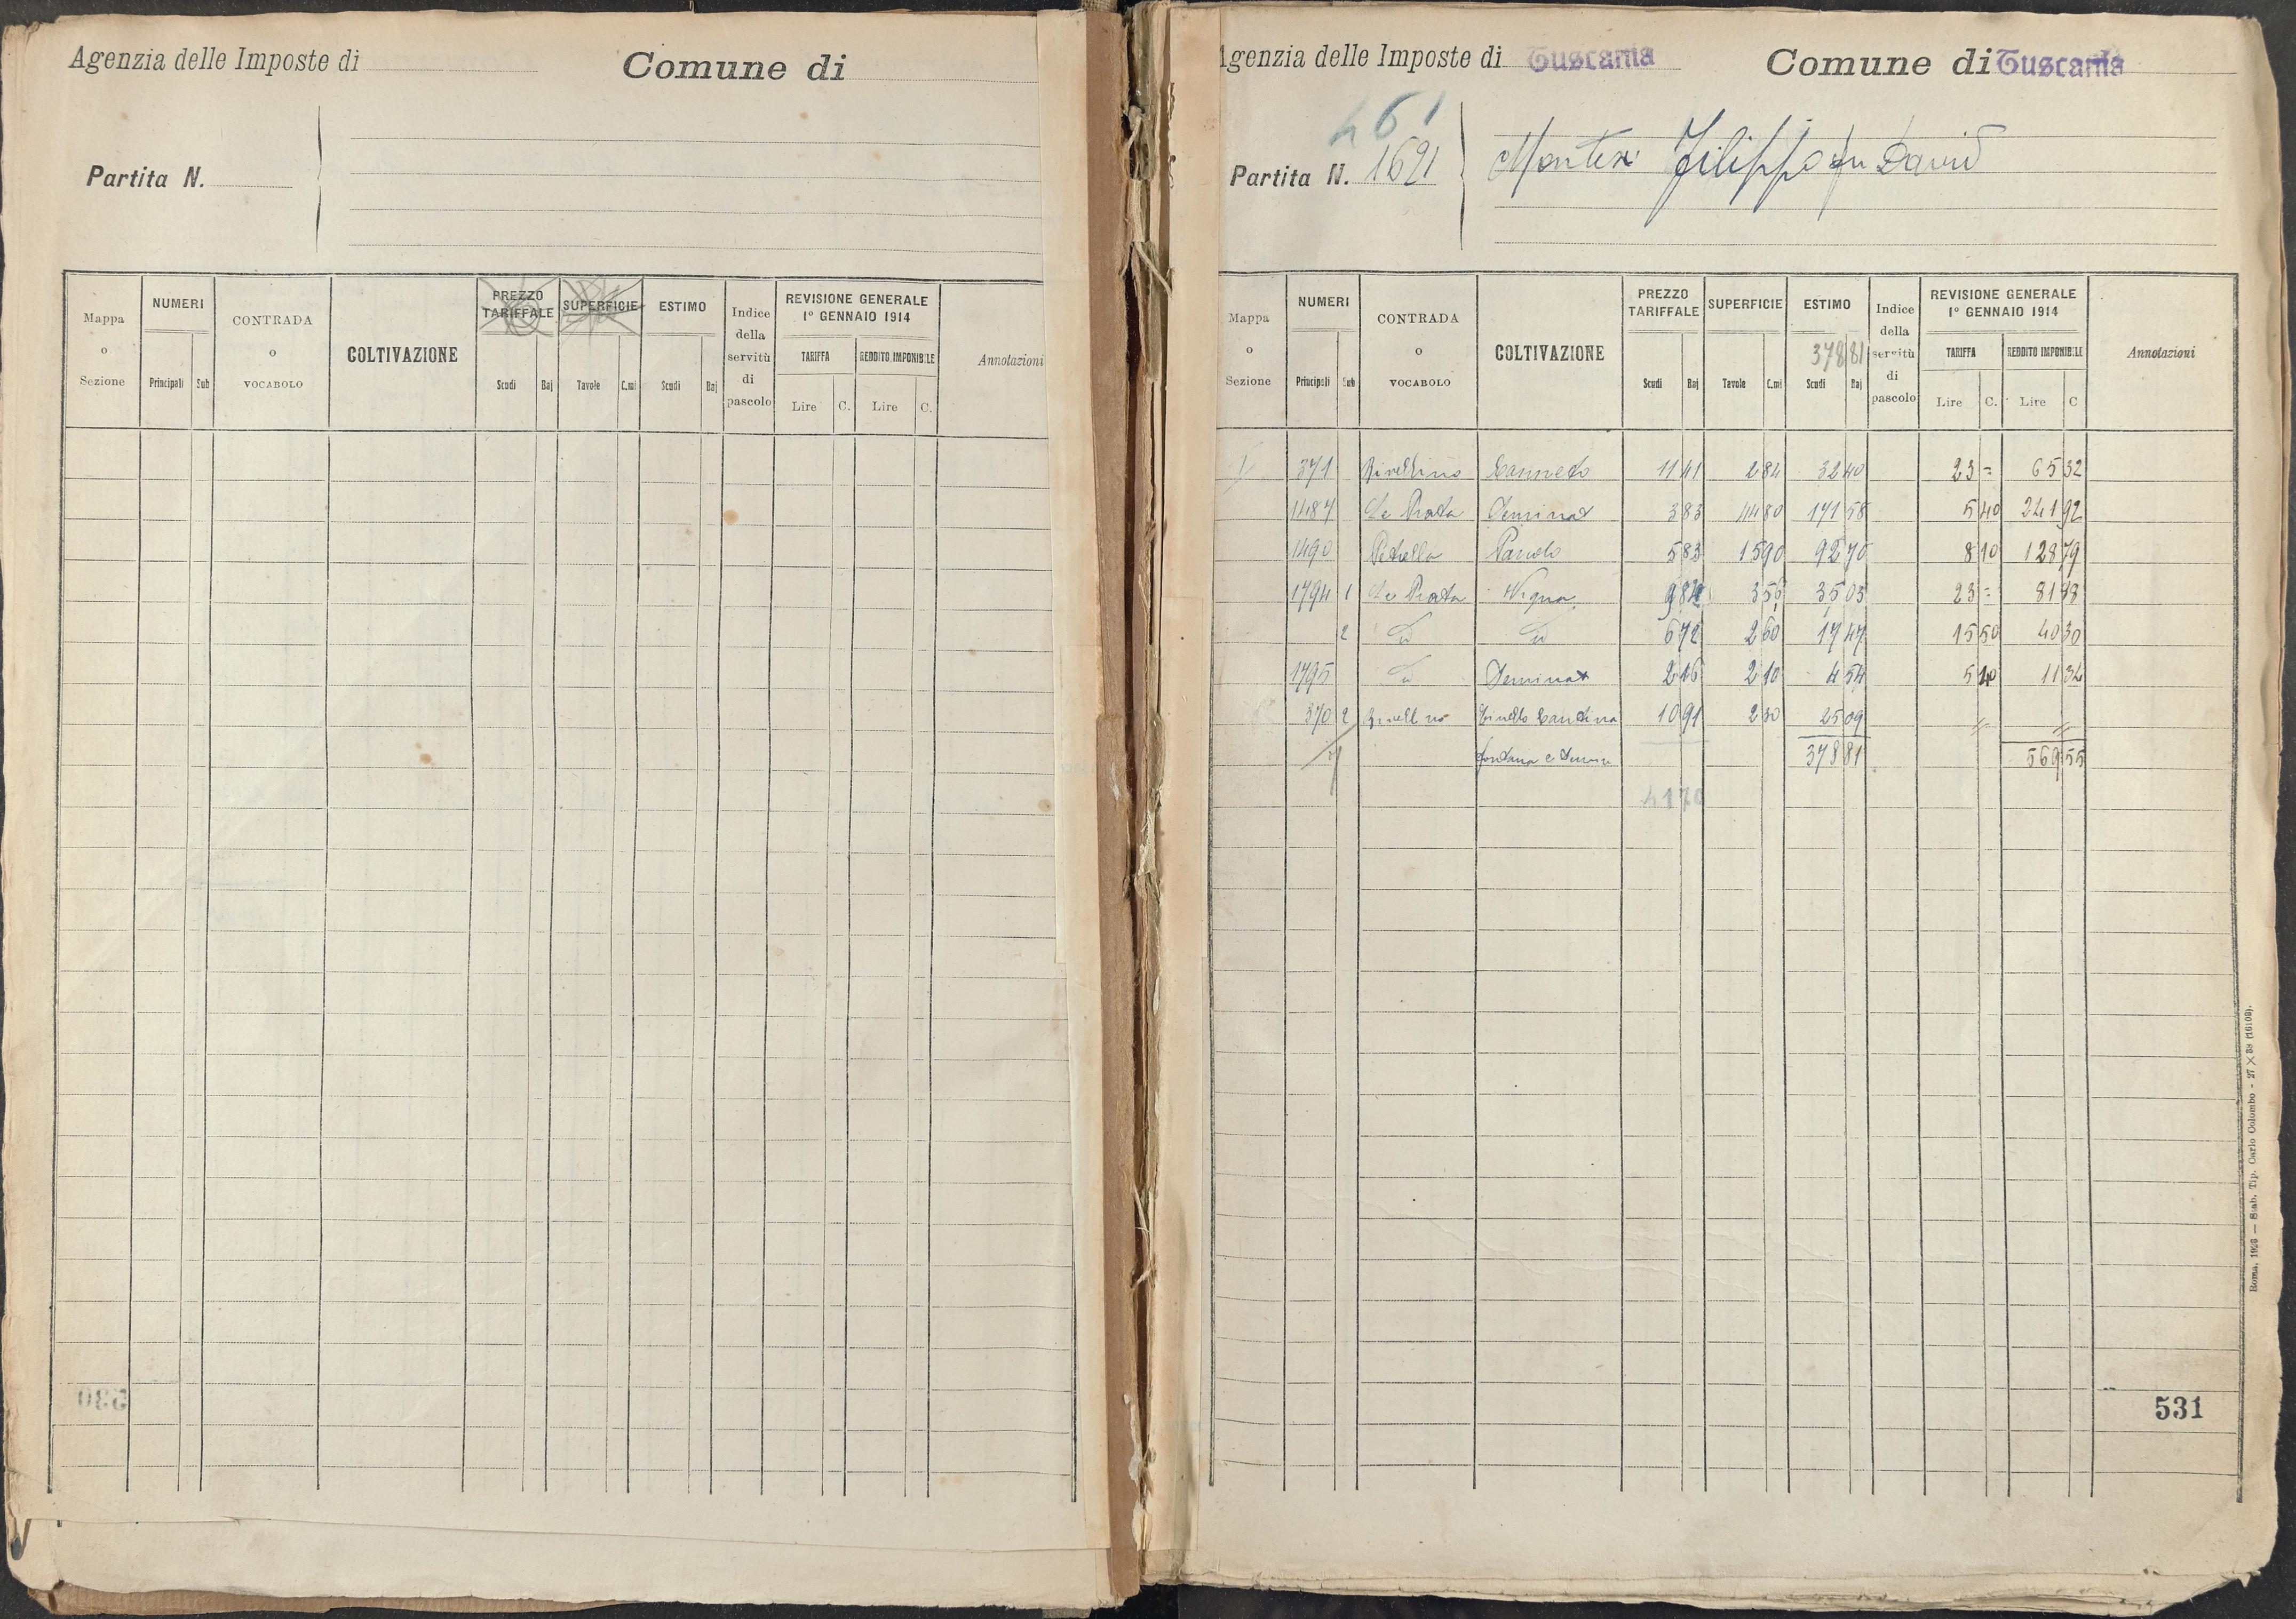 Agenzia delle Imposte di
Comune di
Partita N.
Mappa o Sezione
NUMERI
Principali Sub
CONTRADA o VOCABOLO
COLTIVAZIONE
PREZZO TARIFFALE
Scudi Baj
SUPERFICIE
Tavole C.mi
ESTIMO
Scudi Baj
Indice della servitù di pascolo
REVISIONE GENERALE
1° GENNAIO 1914
TARIFFA
Lire C.
REDDITO IMPONIBILE
Lire C.
Annotazioni
530
Agenzia delle Imposte di Tuscania
Comune di Tuscania
461
Partita N. 1621
Filippo fu David
Mappa o Sezione
NUMERI
Principali Sub
CONTRADA o VOCABOLO
COLTIVAZIONE
PREZZO TARIFFALE
Scudi Baj
SUPERFICIE
Tavole C.mi
ESTIMO
378 81
Scudi Baj
Indice della servitù di pascolo
REVISIONE GENERALE
1° GENNAIO 1914
TARIFFA
Lire C.
REDDITO IMPONIBILE
Lire C
Annotazioni
371 Rivellino Canneto 11 41 2 84 32 40 23 = 65 32
1487 Le Prata Seminat 3 83 44 80 171 58 5 40 241 92
1490 Pascolo 5 83 15 90 92 70 8 10 128 79
1794 1 Le Prata Vigna 3 56 35 03 23 = 81 88
2 6 72 2 60 17 47 15 50 40 30
1795 Seminat 2 16 2 10 4 54 5 40 11 34
370 2 Rivellino Cantina 10 91 2 30 25 09 =
fontana e
378 81 569 55
4170
531
Roma, 1926 — Stab. Tip. Carlo Colombo - 27 X 38 (16109).